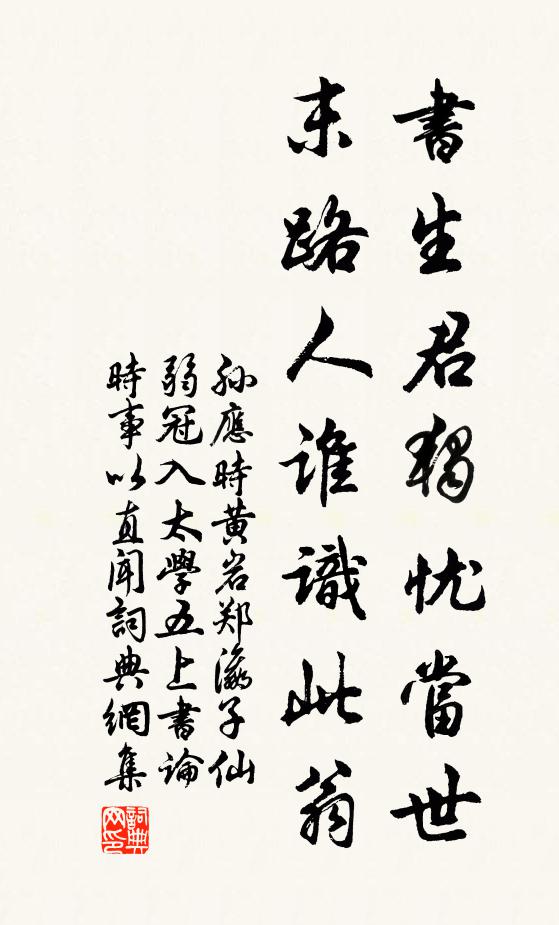 書生君獨忧當世
末路人誰識此翁
孙應時黄岩郑瀛子仙
弱冠入太學五上書論
時事以直聞詞典網集
詞典
网印